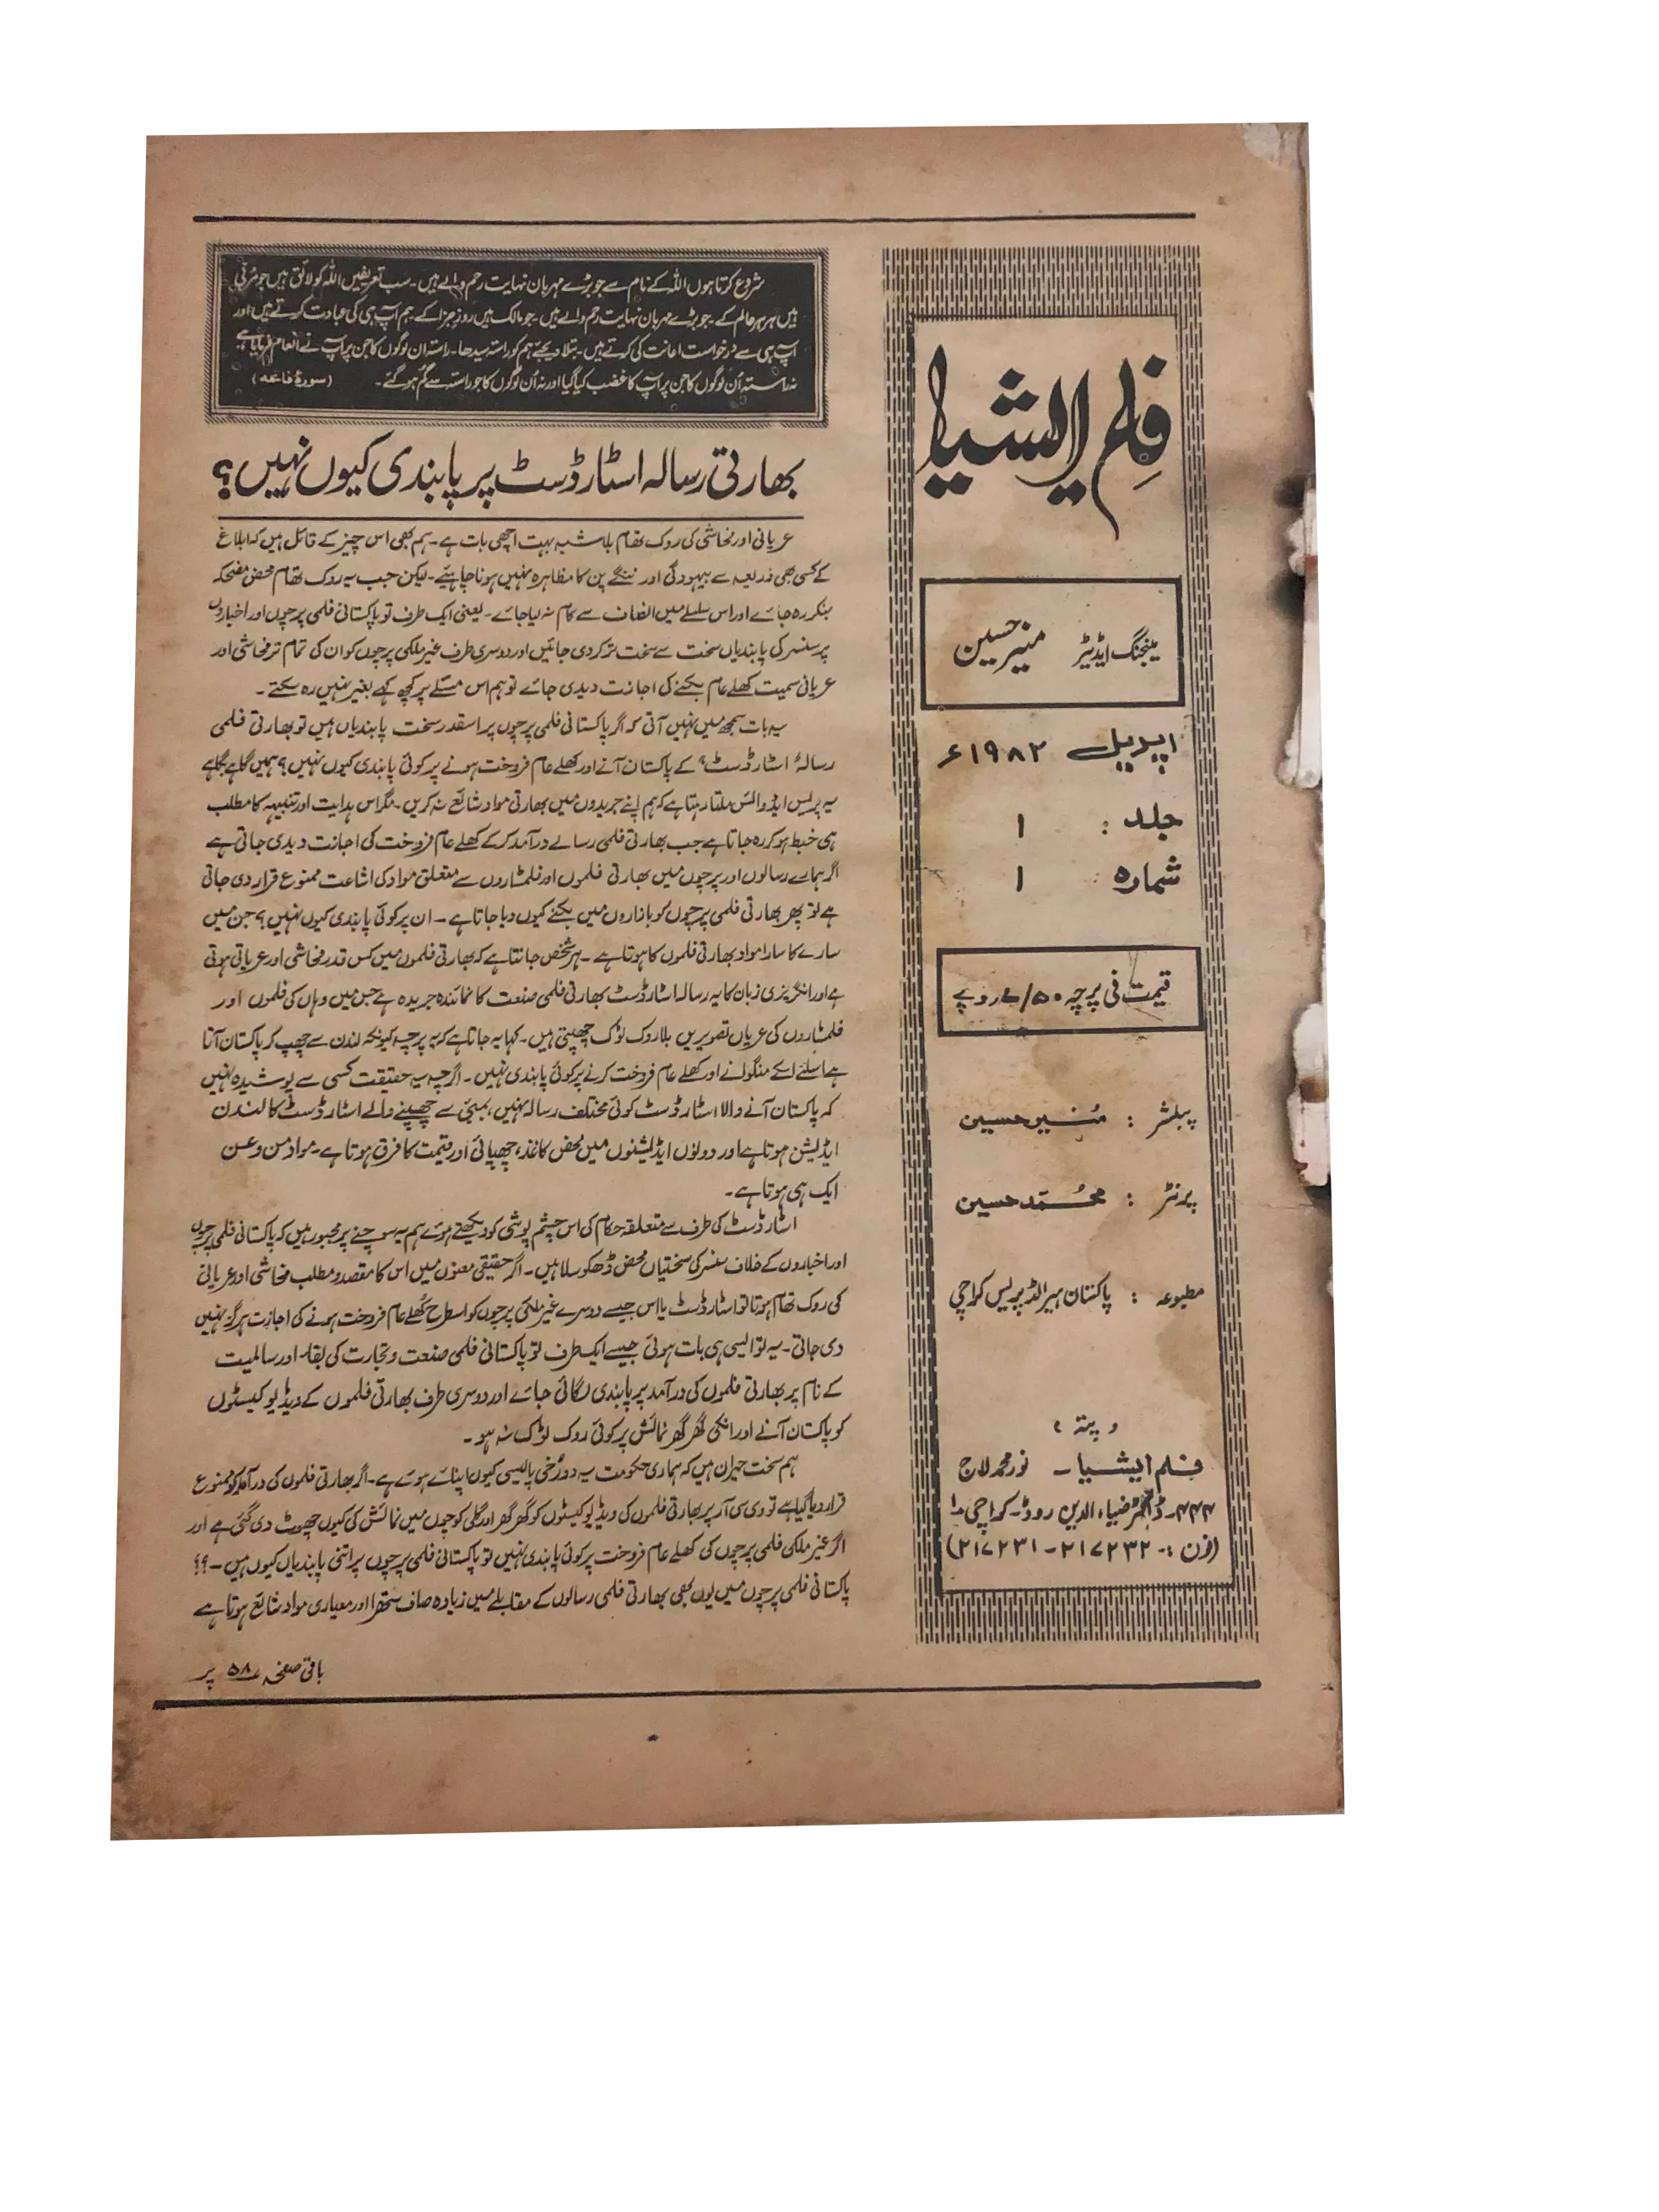 فلم ایشیا
مینجنگ ایڈیٹر منیر حسین
اپریل ۱۹۸۲ء
جلد : ۱
شمارہ : ۱
قیمت فی پرچہ ۷/۵۰ روپے
پبلشر : مُنیر حسین
پرنٹر : محمّد حسین
مطبوعہ : پاکستان ہیرالڈ پریس کراچی
پتہ
فلم ایشیا ۔ نور محمد لاج
ڈاکٹر ضیاء الدین روڈ۔ کراچی ۱
(فون :۔ ۲۱۷۲۳۲ - ۲۱۷۲۳۱)
شروع کرتا ہوں اللہ کے نام سے جو بڑے مہربان نہایت رحم والے ہیں۔ سب تعریفیں اللہ کو لائق ہیں جو مربی
ہیں ہر ہر عالم کے۔ جو بڑے مہربان نہایت رحم والے ہیں۔ جو مالک ہیں روز جزا کے۔ ہم آپ ہی کی عبادت کرتے ہیں اور
آپ ہی سے درخواست اعانت کی کرتے ہیں۔ بتلا دیجئے ہم کو راستہ سیدھا۔ راستہ ان لوگوں کا جن پر آپ نے انعام فرمایا ہے
نہ راستہ اُن لوگوں کا جن پر آپ کا غضب کیا گیا اور نہ اُن لوگوں کا جو راستہ سے گم ہو گئے۔ (سورۂ فاتحہ)
بھارتی رسالہ اسٹارڈسٹ پر پابندی کیوں نہیں؟
عریانی اور فحاشی کی روک تھام بلاشبہ بہت اچھی بات ہے۔ ہم بھی اس چیز کے قائل ہیں کہ ابلاغ
کے کسی بھی ذریعہ سے بیہودگی اور ننگے پن کا مظاہرہ نہیں ہونا چاہئیے۔ لیکن جب یہ روک تھام محض مضحکہ
بنکر رہ جائے اور اس سلسلے میں انصاف سے کام نہ لیا جائے۔ یعنی ایک طرف تو پاکستانی فلمی پرچوں اور اخباروں
پر سنسر کی پابندیاں سخت سے سخت تر کر دی جائیں اور دوسری طرف غیر ملکی پرچوں کو ان کی تمام تر فحاشی اور
عریانی سمیت کھلے عام بکنے کی اجازت دیدی جائے تو ہم اس مسئلے پر کچھ کہے بغیر نہیں رہ سکتے۔
یہ بات سمجھ میں نہیں آتی کہ اگر پاکستانی فلمی پرچوں پر اسقدر سخت پابندیاں ہیں تو بھارتی فلمی
رسالہ اسٹارڈسٹ کے پاکستان آنے اور کھلے عام فروخت ہونے پر کوئی پابندی کیوں نہیں؟ ہمیں گاہے بگاہے
یہ پریس ایڈوائس ملتا رہتا ہے کہ ہم اپنے جریدوں میں بھارتی مواد شائع نہ کریں۔ مگر اس ہدایت اور تنبیہہ کا مطلب
ہی خبط ہو کر رہ جاتا ہے جب بھارتی فلمی رسالے درآمد کر کے کھلے عام فروخت کی اجازت دیدی جاتی ہے
اگر ہمارے رسالوں اور پرچوں میں بھارتی فلموں اور فلمسٹاروں سے متعلق مواد کی اشاعت ممنوع قرار دی جاتی
ہے تو پھر بھارتی فلمی پرچوں کو بازاروں میں بکنے کیوں دیا جاتا ہے۔ ان پر کوئی پابندی کیوں نہیں؟ جن میں
سارے کا سارا مواد بھارتی فلموں کا ہوتا ہے۔ ہر شخص جانتا ہے کہ بھارتی فلموں میں کس قدر فحاشی اور عریانی ہوتی
ہے اور انگریزی زبان کا یہ رسالہ اسٹارڈسٹ بھارتی فلمی صنعت کا نمائندہ جریدہ ہے جس میں وہاں کی فلموں اور
فلمسٹاروں کی عریاں تصویریں بلا روک ٹوک چھپتی ہیں۔ کہا یہ جاتا ہے کہ یہ پرچہ کیونکہ لندن سے چھپ کر پاکستان آتا
ہے اسلئے اسکے منگوانے اور کھلے عام فروخت کرنے پر کوئی پابندی نہیں۔ اگرچہ یہ حقیقت کسی سے پوشیدہ نہیں
کہ پاکستان آنے والا اسٹارڈسٹ کوئی مختلف رسالہ نہیں، بمبئی سے چھپنے والے اسٹارڈسٹ کا لندن
ایڈیشن ہوتا ہے اور دونوں ایڈیشنوں میں محض کاغذ، چھپائی اور قیمت کا فرق ہوتا ہے۔ مواد من و عن
ایک ہی ہوتا ہے۔
اسٹارڈسٹ کی طرف سے متعلقہ حکام کی اس چشم پوشی کو دیکھتے ہوئے ہم یہ سوچنے پر مجبور ہیں کہ پاکستانی فلمی پرچوں
اور اخباروں کے خلاف سنسر کی سختیاں محض ڈھکوسلا ہیں۔ اگر حقیقی معنوں میں اس کا مقصد و مطلب فحاشی اور عریانی
کی روک تھام ہوتا تو اسٹارڈسٹ یا اس جیسے دوسرے غیر ملکی پرچوں کو اسطرح کھلے عام فروخت ہونے کی اجازت ہرگز نہیں
دی جاتی۔ یہ تو ایسی ہی بات ہوئی جیسے ایک طرف تو پاکستانی فلمی صنعت و تجارت کی بقاء اور سالمیت
کے نام پر بھارتی فلموں کی درآمد پر پابندی لگائی جائے اور دوسری طرف بھارتی فلموں کے ویڈیو کیسٹوں
کو پاکستان آنے اور انکی گھر گھر نمائش پر کوئی روک ٹوک نہ ہو۔
ہم سخت حیران ہیں کہ ہماری حکومت یہ دورُخی پالیسی کیوں اپنائے ہوئے ہے۔ اگر بھارتی فلموں کی درآمد کو ممنوع
قرار دیا گیا ہے تو وی سی آر پر بھارتی فلموں کی ویڈیو کیسٹوں کو گھر گھر اور گلی کوچوں میں نمائش کی کیوں چھوٹ دی گئی ہے اور
اگر غیر ملکی فلمی پرچوں کی کھلے عام فروخت پر کوئی پابندی نہیں تو پاکستانی فلمی پرچوں پر اتنی پابندیاں کیوں ہیں۔؟؟
پاکستانی فلمی پرچوں میں یوں بھی بھارتی فلمی رسالوں کے مقابلے میں زیادہ صاف ستھرا اور معیاری مواد شائع ہوتا ہے
باقی صفحہ ۵۸ پر